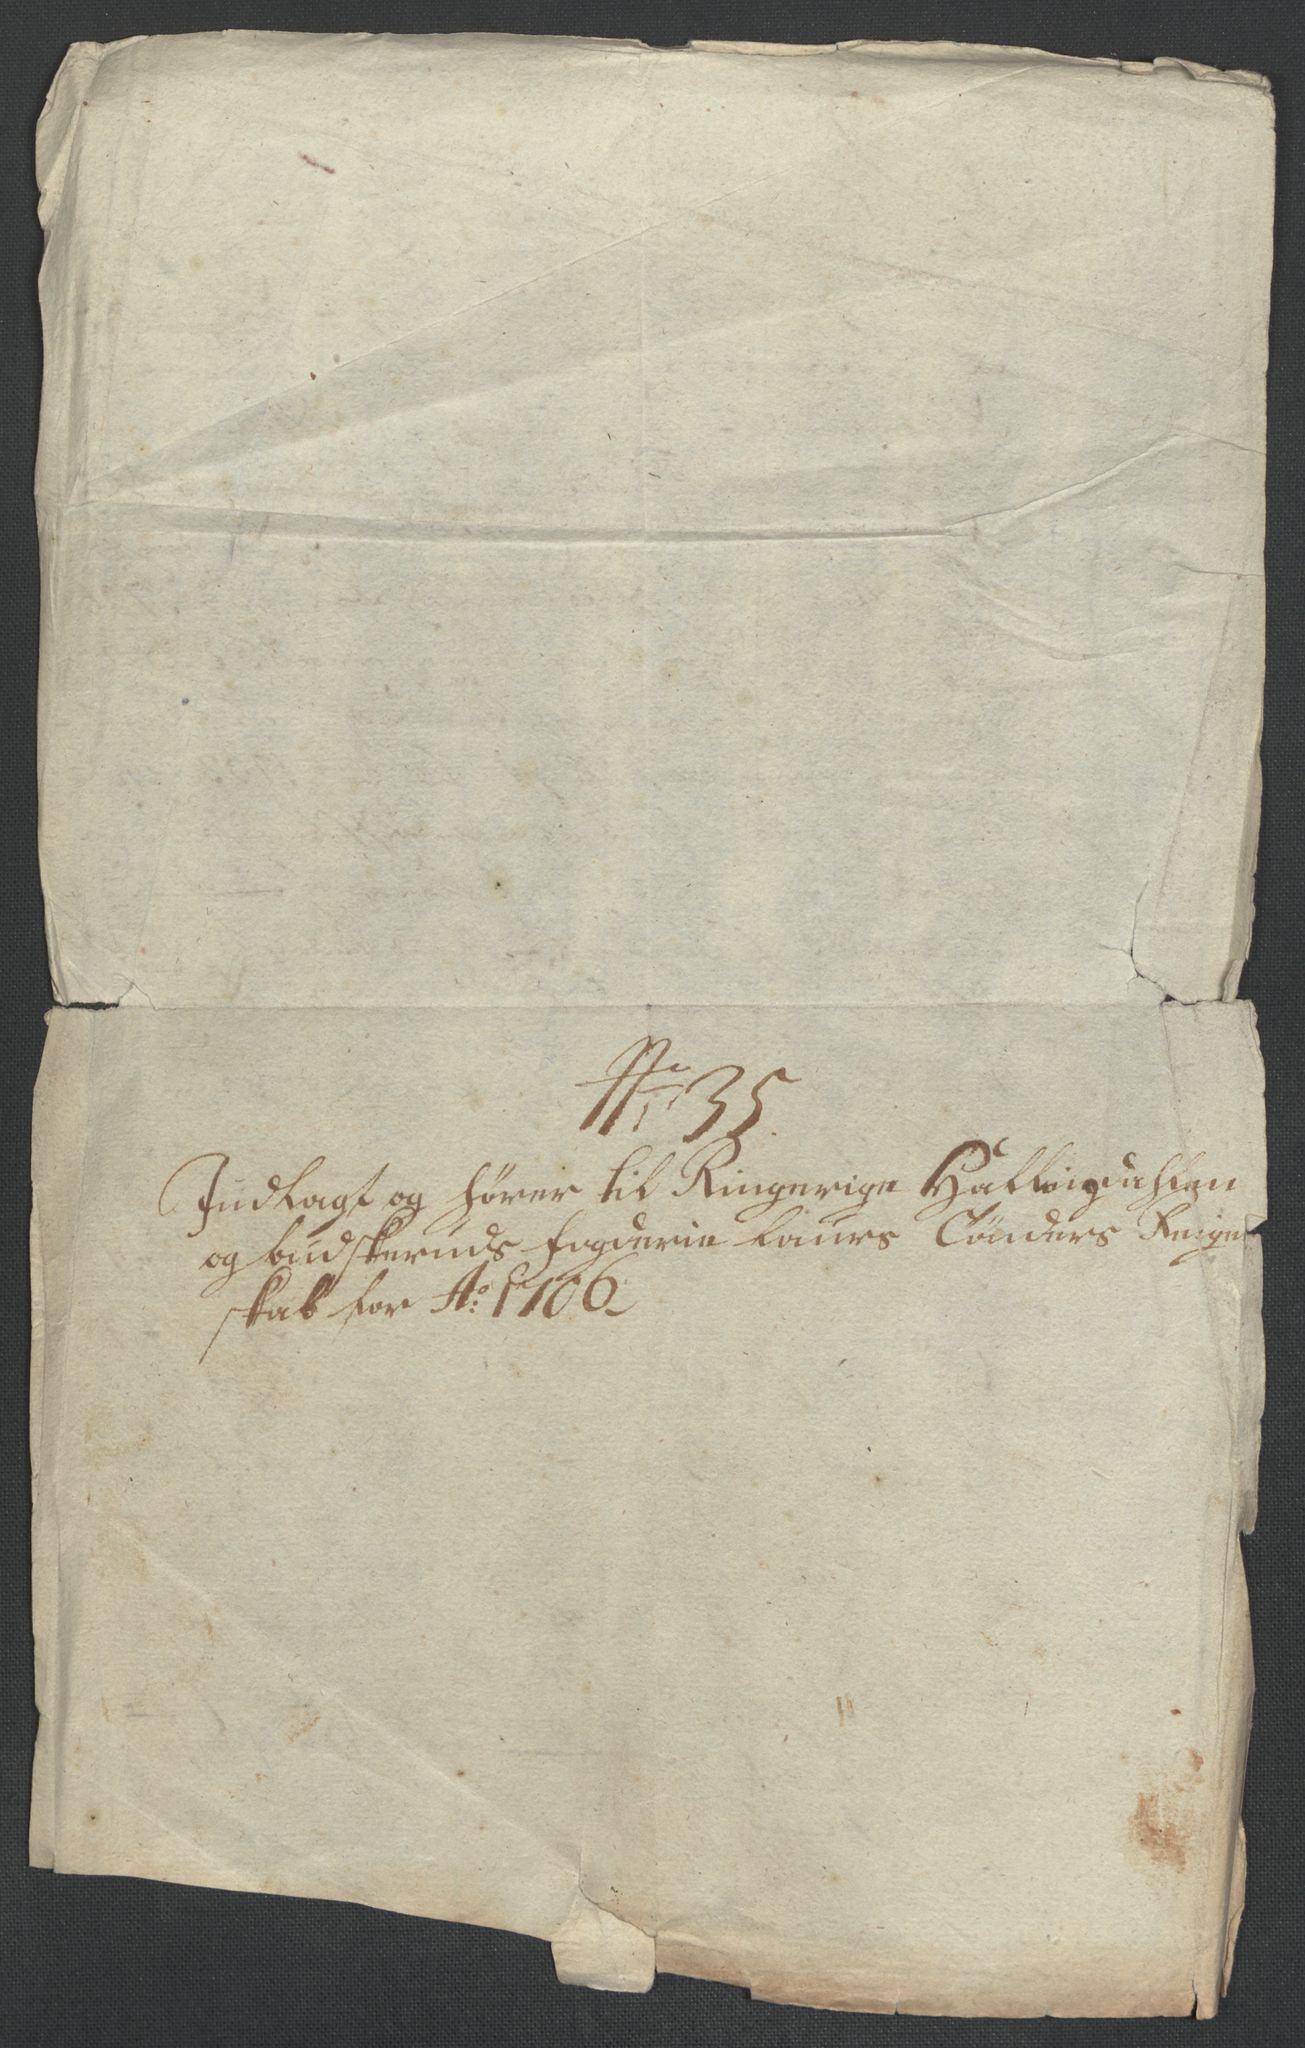 No 35
Indlagt og hører til Ringerige Hallingdahlen
og budskeruds fogderie Laurs Tönders Reigen
skab for Ao: 1706